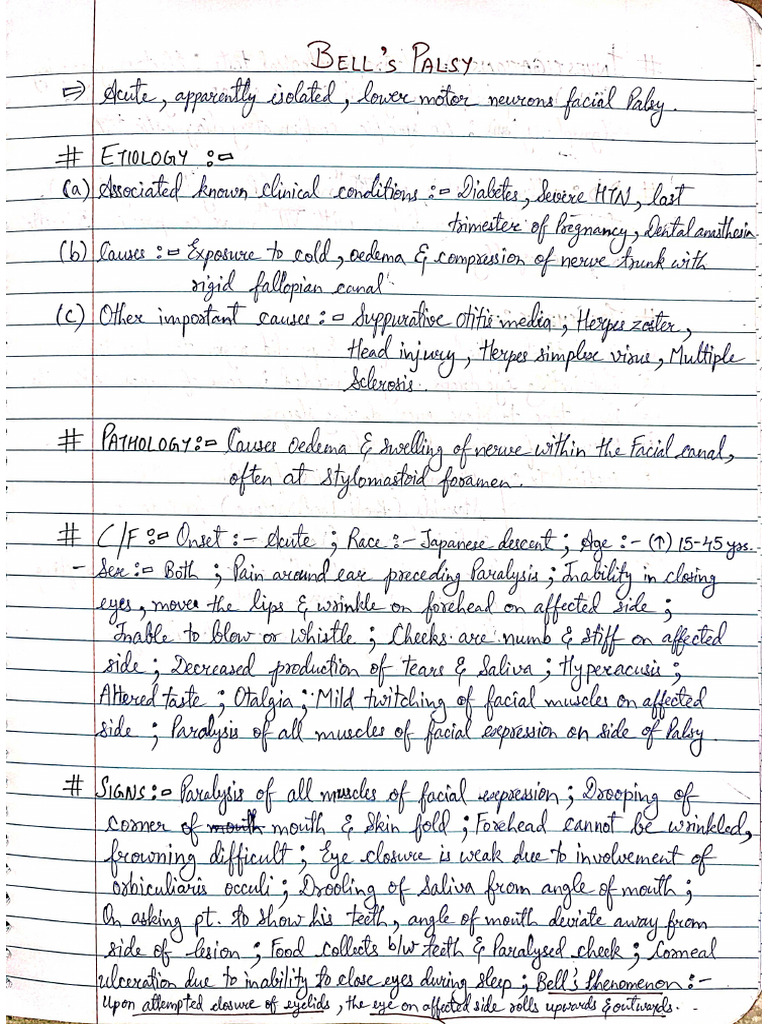 BELL'S PALSY
⇒ Acute, apparently isolated, lower motor neurons facial Palsy.
# ETIOLOGY :-
(a) Associated known clinical conditions :- Diabetes, Severe HTN, last
trimester of Pregnancy, Dental anasthesia
(b) Causes :- Exposure to cold, oedema & compression of nerve trunk with
rigid fallopian canal
(c) Other important causes :- Suppurative Otitis media, Herpes zoster,
Head injury, Herpes simplex virus, Multiple
Sclerosis.
# PATHOLOGY :- Causes oedema & swelling of nerve within the Facial canal,
often at stylomastoid foramen.
# C/F :- Onset :- Acute ; Race :- Japanese descent ; Age :- (↑) 15-45 yrs.
- Sex :- Both ; Pain around ear preceding Paralysis ; Inability in closing
eyes, move the lips & wrinkle on forehead on affected side ;
Inable to blow or whistle ; Cheeks are numb & stiff on affected
side ; Decreased production of tears & Saliva ; Hyperacusis ;
Altered taste ; Otalgia ; Mild twitching of facial muscles on affected
side ; Paralysis of all muscles of facial expression on side of Palsy.
# SIGNS :- Paralysis of all muscles of facial expression ; Drooping of
corner of mouth mouth & Skin fold ; Forehead cannot be wrinkled,
frowning difficult ; Eye closure is weak due to involvement of
orbiculiaris occuli ; Drooling of Saliva from angle of mouth ;
On asking pt. to show his teeth, angle of mouth deviate away from
side of lesion ; Food collects b/w teeth & Paralysed cheek ; Corneal
ulceration due to inability to close eyes during sleep ; Bell's Phenomenon :-
Upon attempted closure of eyelids, the eye on affected side rolls upwards & outwards.